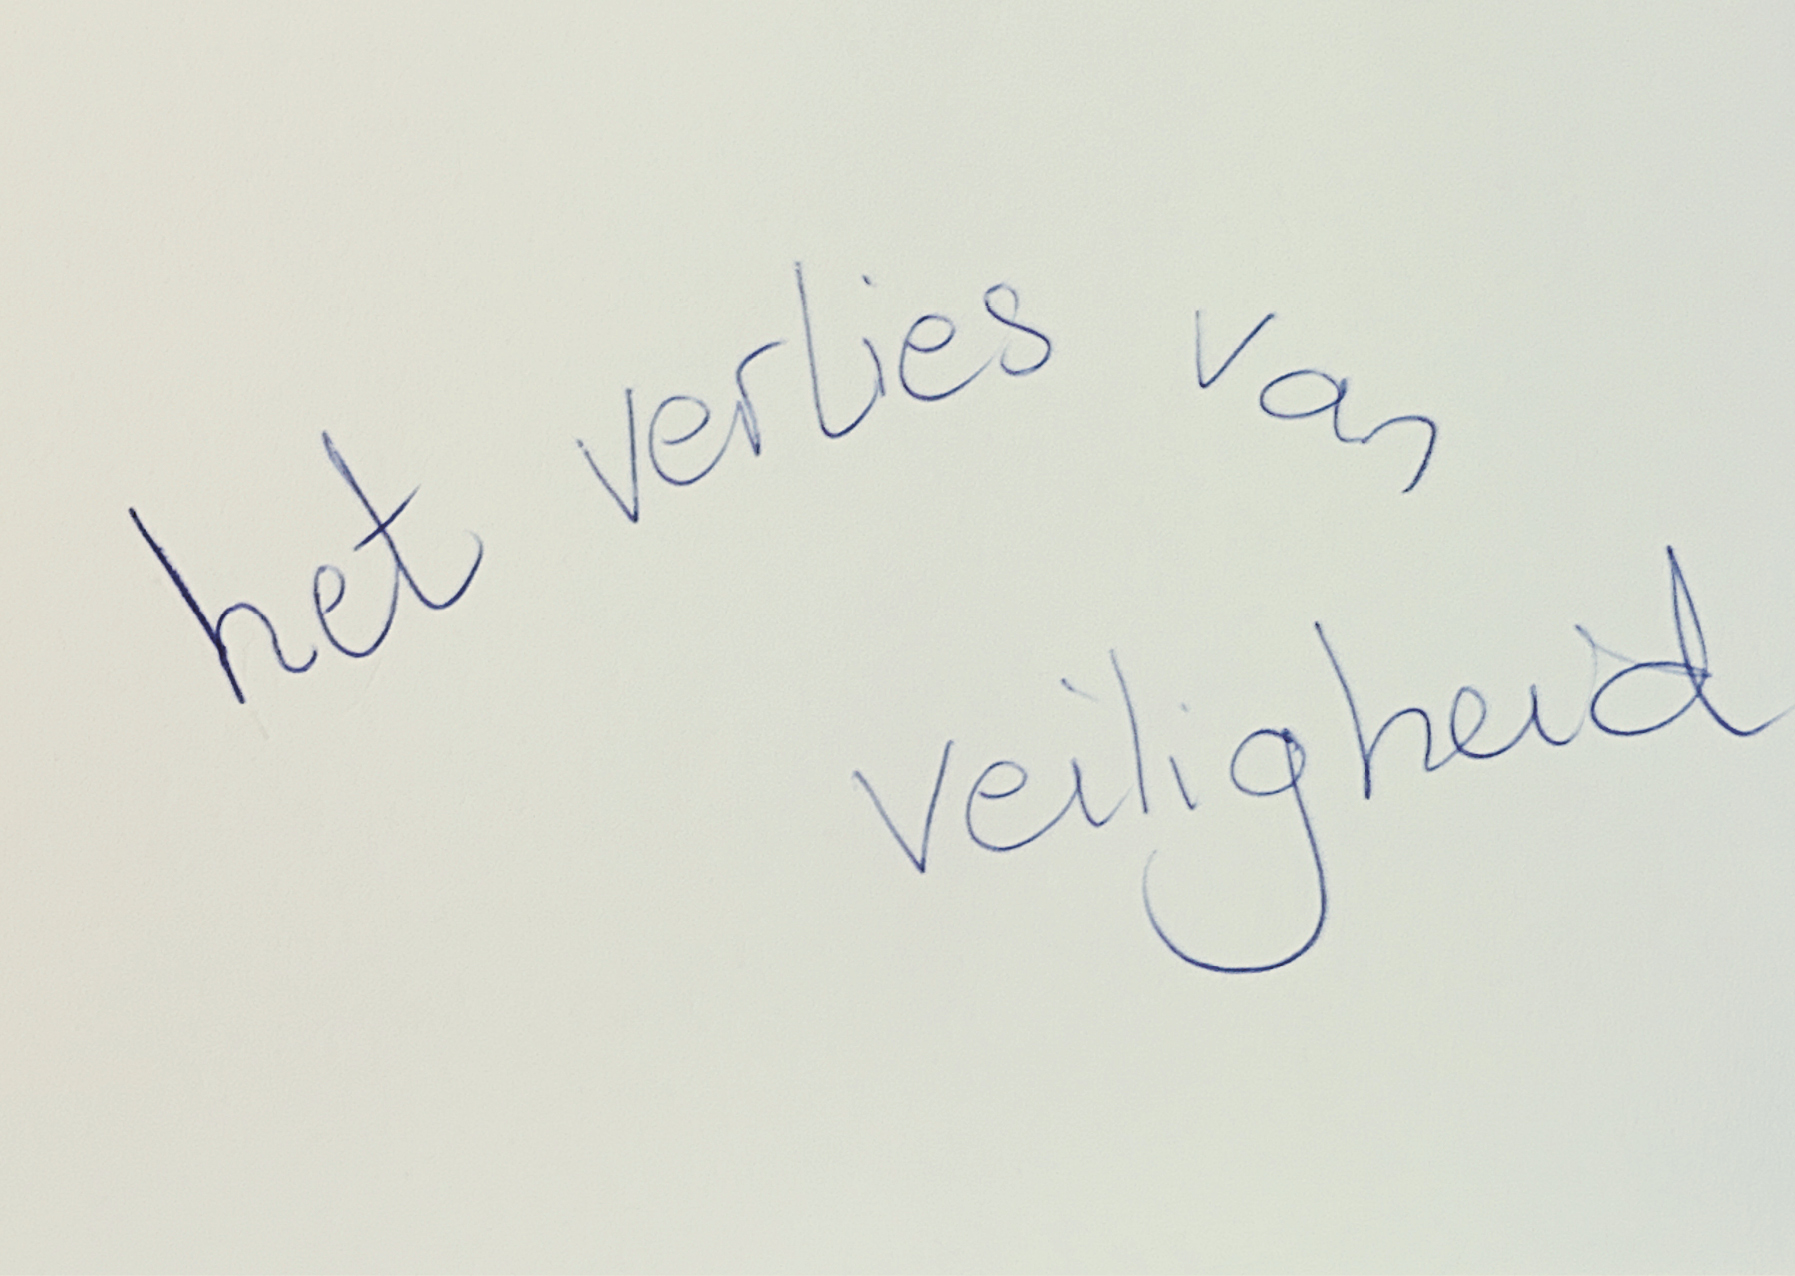 het verlies van
veiligheid